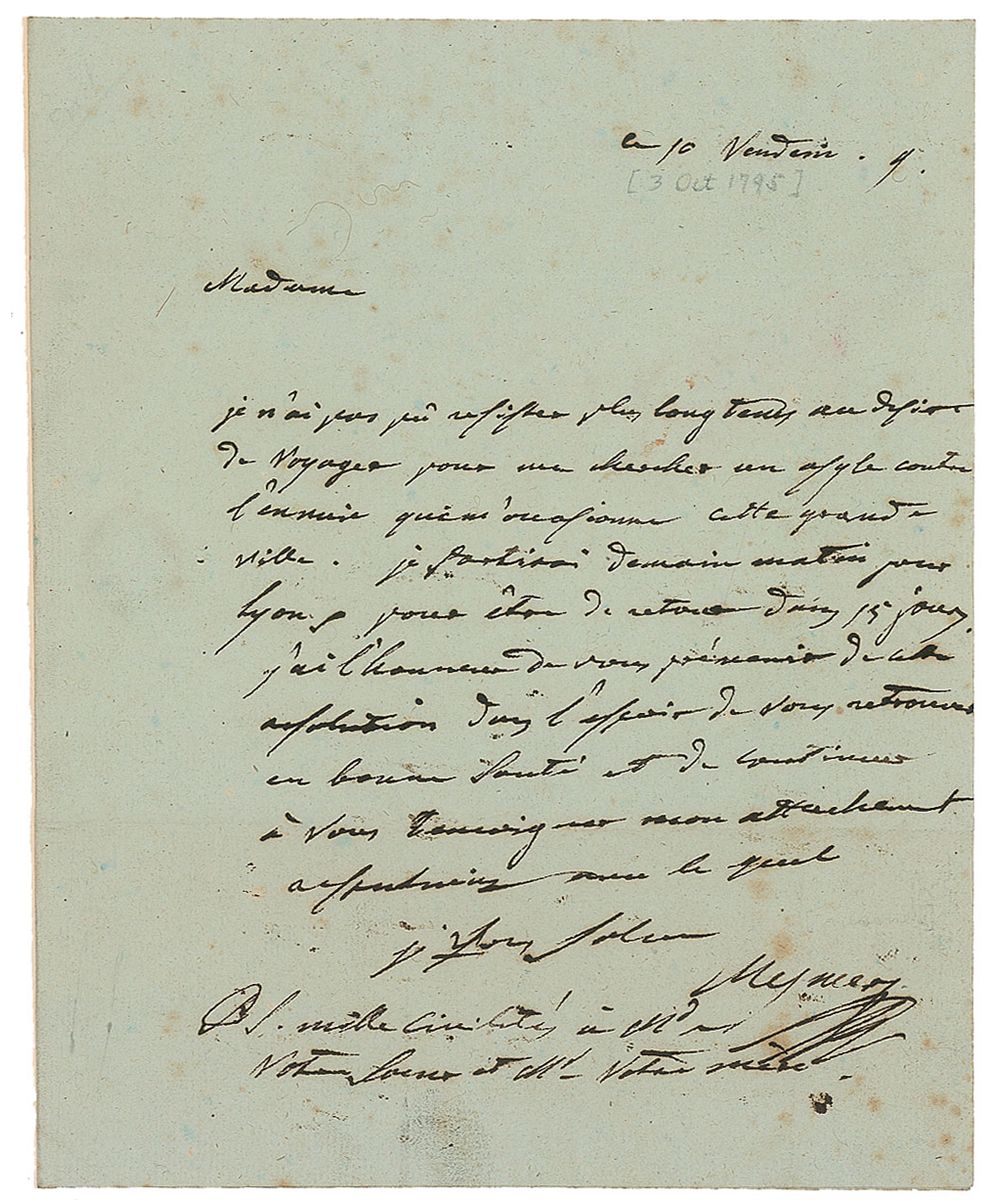 ce 10 Vendem. 9.
[3 Oct 1795]
Madame
je n'ai pas pû resister plus longtems au desir
de voyager pour me chercher un asyle contre
l'ennuie que m'occasionne cette grande
ville. je partirai demain matin pour
Lyon, pour être de retour dans 15 jours,
j'ai l'honneur de vous prévenir de cette
resolution dans l'espoir de vous retrouver
en bonne santé et de continuer
à vous temoigner mon attachement
respectueux avec le quel
je vous salue
Mesmer
P S. mille civilités à Md
votre soeur et Md votre mère.